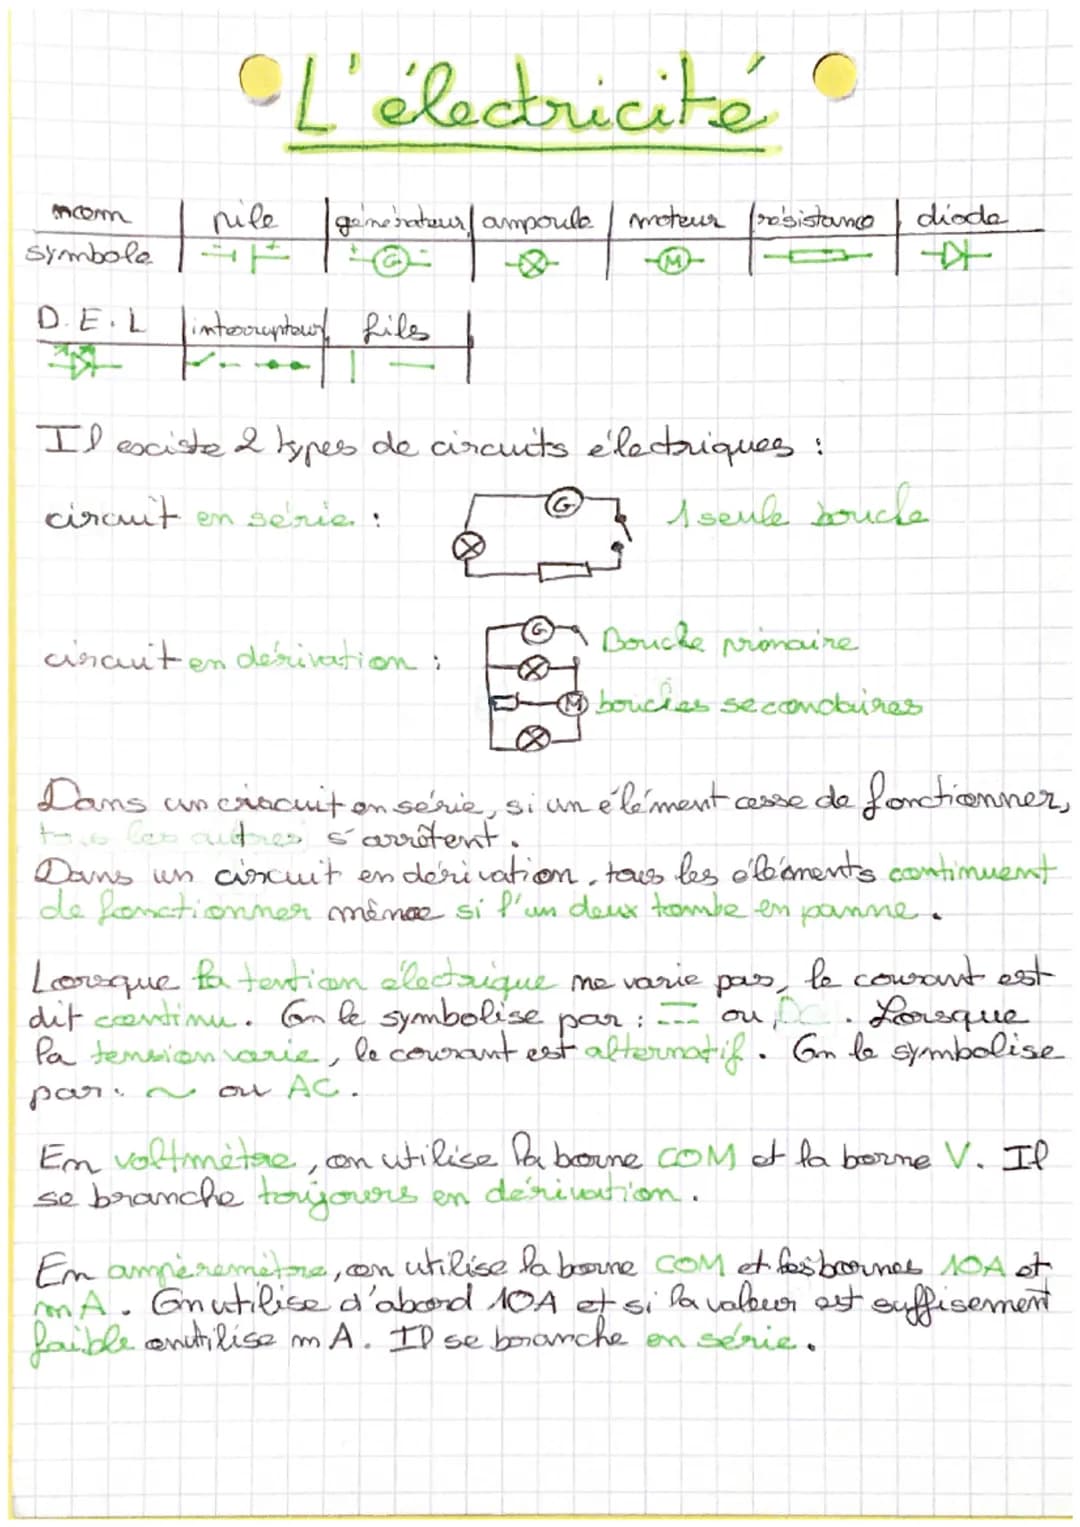 L'électricité
nom pile générateur ampoule moteur résistance diode
symbole - + + G - M
D.E.L interrupteur fils
Il existe 2 types de circuits électriques :
circuit en série : G 1 seule boucle
circuit en dérivation : G Bouche primaire
M boucles secondaires
Dans un circuit en série, si un élément cesse de fonctionner,
tous les autres s'arrêtent.
Dans un circuit en dérivation, tous les éléments continuent
de fonctionner même si l'un deux tombe en panne.
Lorsque la tention électrique ne varie pas, le courant est
dit continu. On le symbolise par : ou DC. Lorsque
la tension varie, le courant est alternatif. On le symbolise
par : ~ ou AC.
En voltmètre, on utilise la borne COM et la borne V. Il
se branche toujours en dérivation.
En ampèremètre, on utilise la borne COM et les bornes 10A et
mA. On utilise d'abord 10A et si la valeur est suffisement
faible on utilise mA. Il se branche en série.